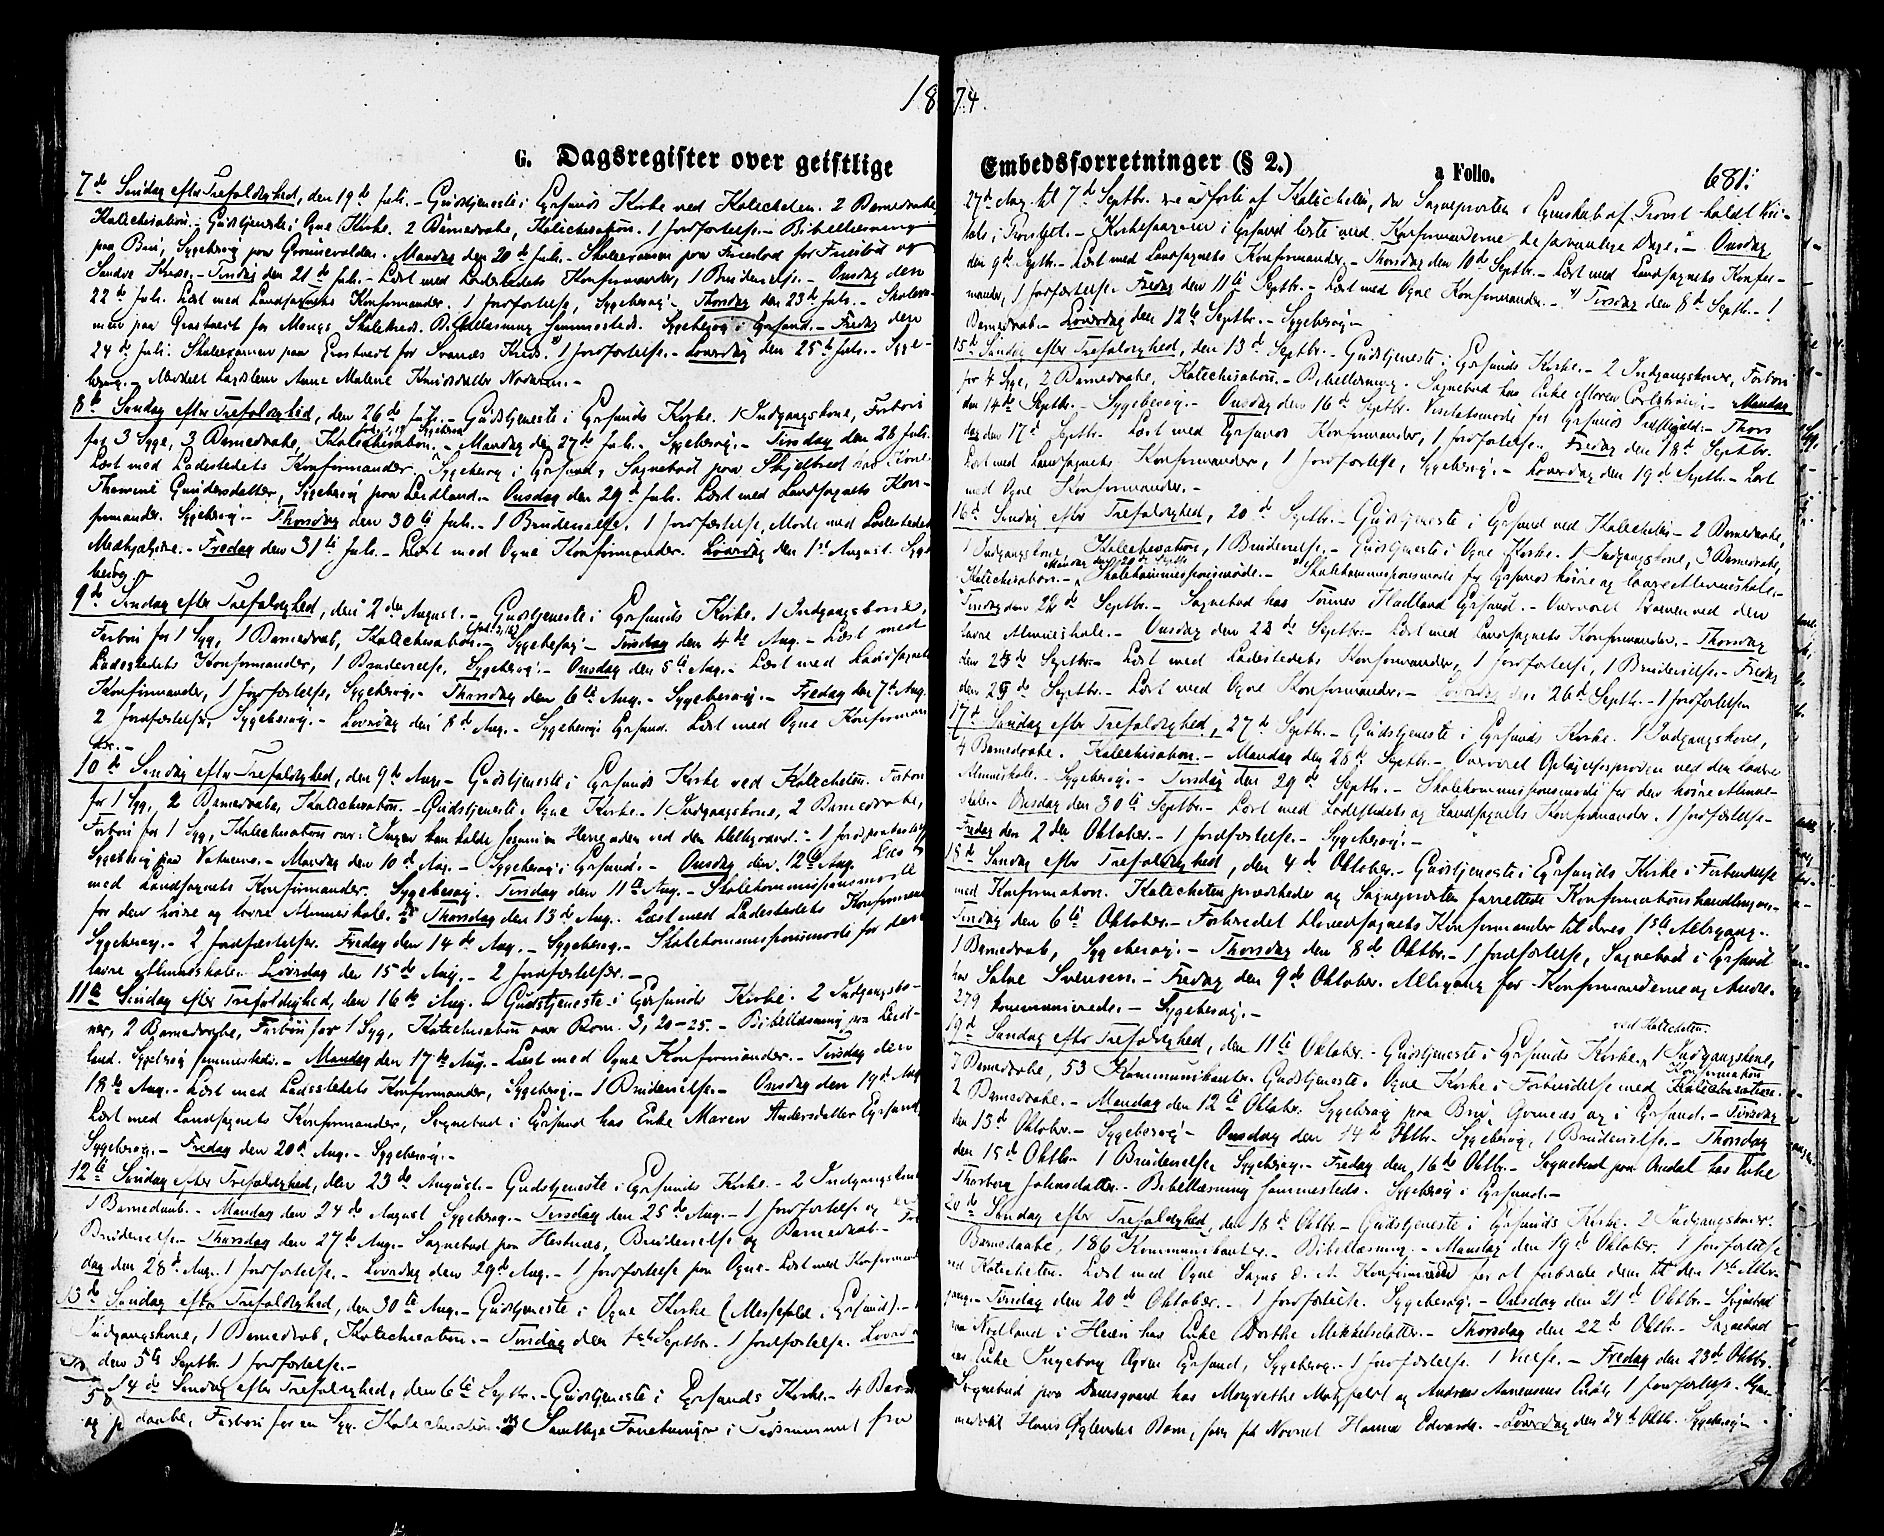 1874.
G. Dagsregister over geistlige
7de Søndag efter Trefoldighed, den 19de Juli. - Gudstjeneste i Egersunds Kirke ved Katecheten. 2 Barnedaabe
Katechisation. Gudstjeneste i Ogne Kirke. 2 Barnedaabe, Katechisation. 1 Jordfæstelse. - Bibellæsning
paa Bru, Sygebesøg paa Grønnevolden. Mandag den 20de Juli. - Skoleexamen paa for og
Tirsdag den 21de Juli. - Læst med Ladestedets Konfirmander, 1 Brudevielse. - Onsdag den
22de Juli. Læst med Landsognets Konfirmander. 1 Jordfæstelse, Sygebesøg - Thorsdag den 23de Juli. - Skoleexa-
men paa for Skolekreds. Bibellæsning sammesteds. Sygebesøg i Egersund. - Fredag den
24de Juli. Skoleexamen paa for Svanæs Kreds. 1 Jordfæstelse. - Løverdag den 25de Juli. - Syge-
besøg. - Meddelt Anne Malene Knudsdatter
8de Søndag efter Trefoldighed, den 26de Juli. - Gudstjeneste i Egersunds Kirke. 1 Indgangskone, Forbøn
for 3 Syge, 3 Barnedaabe, Katechisation. - Mandag den 27de Juli. - Sygebesøg. - Tirsdag den 28 Juli.
Læst med Ladestedets Konfirmander, Sygebesøg i Egersund, Sognebud paa Skjelbred hos Kone
Gundersdatter, Sygebesøg paa Leidland. - Onsdag den 29d Juli. Læst med Landsognets Kon-
firmander. Sygebesøg - Thorsdag den 30te Juli. - 1 Brudevielse, 1 Jordfæstelse, Møde med Ladestedets
Medhjælpere. - Fredag den 31te Juli. - Læst med Ogne Konfirmander. Løverdag den 1ste August. Syge
besøg. -
9de Søndag efter Trefoldighed, den 2den August. - Gudstjeneste i Egersunds Kirke. 1 Indgangskone,
Forbøn for 1 Syg, 1 Barnedaab, Katechisation. - Sygebesøg - Tirsdag den 4de Aug. - Læst med
Ladestedets Konfirmander, 1 Brudevielse, Sygebesøg. - Onsdag den 5te Aug. - Læst med Landsognets
Konfirmander, 1 Jordfæstelse, Sygebesøg. - Thorsdag den 6te Aug. - Sygebesøg. - Fredag den 7de Aug.
2 Jordfæstelser, Sygebesøg. - Løverdag den 8d Aug. - Sygebesøg i Egersund. Læst med Ogne Konfirman
der. -
10de Søndag efter Trefoldighed, den 9de Aug. - Gudstjeneste i Egersunds Kirke ved Katecheten. Forbøn
for 1 Syg, 2 Barnedaabe, Katechisation. - Gudstjeneste i Ogne Kirke. - 1 Indgangskone, 2 Barnedaabe,
Forbøn for 1 Syg, Katechisation over: Ingen kan kalde Jesum en Herre uden ved den Helligaand. - 1 Jordfæstelse
Sygebesøg paa Vatnemo. - Mandag den 10de Aug. - Sygebesøg i Egersund. - Onsdag den 12te Aug. Læst
med Landsognets Konfirmander. Sygebesøg. Tirsdag den 11te Aug. - Skolekommissionsmøde
for den høire og lavre Almueskole. Thorsdag den 13de Aug. Læst med Ladestedets Konfirmand
Sygebesøg. - 2 Jordfæstelser. Fredag den 14de Aug. - Sygebesøg. - Skolekommissionsmøde for den
lavre Almueskole. Løverdag den 15de Aug. - 2 Jordfæstelser. -
11te Søndag efter Trefoldighed, den 16de Aug. - Gudstjeneste i Egersunds Kirke. 2 Indgangsko-
ner, 2 Barnedaabe, Forbøn for 1 Syg, Katechisation over Rom. 3, 20-25. - Bibellæsning paa Leid-
land. Sygebesøg sammesteds. - Mandag den 17de Aug. - Læst med Ogne Konfirmander. - Tirsdag den
18de Aug. - Læst med Ladestedets Konfirmander, Sygebesøg. - 1 Brudevielse. - Onsdag den 19d Aug
Læst med Landsognets Konfirmander, Sognebud i Egersund hos Enke Maren Andersdatter Egersund,
Sygebesøg. - Fredag den 20de Aug. - Sygebesøg. -
12te Søndag efter Trefoldighed, den 23de August. - Gudstjeneste i Egersunds Kirke. - 2 Indgangskoner
1 Barnedaab. - Mandag den 24de August Sygebesøg. - Tirsdag den 25de Aug. - 1 Jordfæstelse og en
Brudevielse. - Thorsdag den 27de Aug. - Sognebud paa Hestnæs, Brudevielse og Barnedaab. - Fre-
dag den 28de Aug. 1 Jordfæstelse. - Løverdag den 29de Aug. - 1 Jordfæstelse paa Ogne - Læst med Konfirmand
13de Søndag efter Trefoldighed, den 30te Aug. - Gudstjeneste i Ogne Kirke (Messefald i Egersund). -
Indgangskone, 1 Barnedaab, Katechisation. - Tirsdag den 1ste Septbr. 1 Jordfæstelse. Løverdag
den 5te Septbr. 1 Jordfæstelse. -
14de Søndag efter Trefoldighed, den 6te Septbr. - Gudstjeneste i Egersunds Kirke. - 4 Barne
daabe, Forbøn for en Syg. Katechisation. Samtlige Forretninger i Tidsrummet fra
Embedsforretninger (§ 2.)
a Folio.
681.
27de Aug. til 7de Septbr. ere udførte af Katecheten, da Sognepræsten i Egenskab af Provst holdt Visi-
tats i Provstiet. - Kirkesangeren i Egersund læste med Konfirmanderne de sædvanlige Dage. - Onsdag
den 9de Septbr. - Læst med Landsognets Konfirmander. - Thorsdag den 10de Septbr. - Læst med Landsognets Konfir-
mander, 1 Jordfæstelse. Fredag den 11te Septbr. - Læst med Ogne Konfirmander. - Tirsdag den 8de Septbr. - 1
Barnedaab. - Løverdag den 12te Septbr. - Sygebesøg. -
15de Søndag efter Trefoldighed, den 13de Septbr. - Gudstjeneste i Egersunds Kirke. - 2 Indgangskoner, Forbøn
for 4 Syge, 2 Barnedaabe, Katechisation. - Bibellæsning. Sognebud hos Enke - Mandag
den 14de Septbr. - Sygebesøg. - Onsdag den 16de Septbr. for Egersunds - Thors
dag den 17de Septbr. Læst med Egersunds Konfirmander, 1 Jordfæstelse. Fredag den 18de Septbr.
Læst med Landsognets Konfirmander, 1 Jordfæstelse, Sygebesøg. - Løverdag den 19de Septbr. - Læst
med Ogne Konfirmander. -
16de Søndag efter Trefoldighed, 20de Septbr. - Gudstjeneste i Egersund ved Katecheten - 2 Barnedaabe,
1 Indgangskone, Katechisation, 1 Brudevielse. - Gudstjeneste i Ogne Kirke. 1 Indgangskone, 3 Barnedaabe,
Katechisation. - Skolekommissionsmøde. - Skolekommissionsmøde for Egersunds høire og lavre Almueskole. -
Tirsdag den 22de Septbr. - Sognebud hos Hadland Egersund. - Overværet Examen ved den
lavre Almueskole. - Onsdag den 23de Septbr. - Læst med Landsognets Konfirmander. - Thorsdag
den 24de Septbr. - Læst med Ladestedets Konfirmander, 1 Jordfæstelse, 1 Brudevielse. - Fredag
den 25de Septbr. - Læst med Ogne Konfirmander. - Løverdag den 26de Septbr. - 1 Jordfæstelse
17de Søndag efter Trefoldighed, 27de Septbr. - Gudstjeneste i Egersunds Kirke. 1 Indgangskone,
4 Barnedaabe. Katechisation. - Mandag den 28de Septbr. - Overværet Optagelsesprøven ved den lavre
Almueskole. - Sygebesøg. - Tirsdag den 29de Septbr. - Skolekommissionsmøde for den høire Almue-
skole. - Onsdag den 30te Septbr. - Læst med Ladestedets og Landsognets Konfirmander. 1 Jordfæstelse. -
Fredag den 2den Oktober. - 1 Jordfæstelse. - Sygebesøg. -
18de Søndag efter Trefoldighed, den 4de Oktober. - Gudstjeneste i Egersunds Kirke i Forbindelse
med Konfirmation. Katecheten prædikede og Sognepræsten forrettede Konfirmationshandlingen. -
Tirsdag den 6te Oktober. - Forberedet Hovedsognets Konfirmander til deres 1ste Altergang. -
1 Barnedaab, Sygebesøg. - Thorsdag den 8de Oktbr. - 1 Jordfæstelse, Sognebud i Egersund
hos Salve Svensen. - Fredag den 9de Oktober. Altergang for Konfirmanderne og Andre.
279 kommunicerede. - Sygebesøg. -
ved Katecheten.
19de Søndag efter Trefoldighed, den 11te Oktober. - Gudstjeneste i Egersunds Kirke, 1 Indgangskone,
Konfirmation
3 Barnedaabe, 53 Kommunikanter. Gudstjeneste i Ogne Kirke i Forbindelse med Katechisation.
2 Barnedaabe. - Mandag den 12te Oktober. Sygebesøg paa Bru, og i Egersund. - Tirsdag
den 13de Oktober. - Sygebesøg - Onsdag den 14de Oktbr. Sygebesøg, 1 Brudevielse. - Thorsdag
den 15de Oktbr. 1 Brudevielse Sygebesøg. - Fredag den 16de Oktbr. - Sognebud paa hos Enke
Thorborg Johnsdatter. - Bibellæsning sammesteds. Sygebesøg i Egersund. -
20de Søndag efter Trefoldighed, den 18de Oktbr. - Gudstjeneste i Egersunds Kirke. 2 Indgangskoner.
Barnedaabe, 186 Kommunikanter. - Bibellæsning. - Mandag den 19de Oktober. 1 Jordfæstelse
ved Katecheten. Læst med Ogne Sogns Konfirmerede for at forberede dem til den 1ste Alter-
gang. - Tirsdag den 20de Oktober. - 1 Jordfæstelse. Sygebesøg. - Onsdag den 21de Oktbr. - Sognebud
paa Nydland i Heien hos Enke Dorthe Mikkelsdatter. - Thorsdag den 22de Oktbr. - Sognebud
hos Enke Ingeborg Egersund, Sygebesøg. - 1 Jordfæstelse. 1 Vielse. - Fredag den 23de Oktbr.
Sognebud paa Damsgaard hos og Andreas 1 Jordfæstelse. Hjem-
medøbt Hans Barn, som fik Navnet Hanna - Løverdag den 24de Oktbr. Sygebesøg -